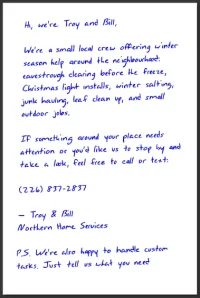 Hi, we're Troy and Bill,
We're a small local crew offering winter
season help around the neighbourhood:
eavestrough clearing before the freeze,
Christmas light installs, winter salting,
junk hauling, leaf clean up, and small
outdoor jobs.
If something around your place needs
attention or you'd like us to stop by and
take a look, feel free to call or text:
(226) 837-2837
— Troy & Bill
Northern Home Services
P.S. We're also happy to handle custom
tasks. Just tell us what you need